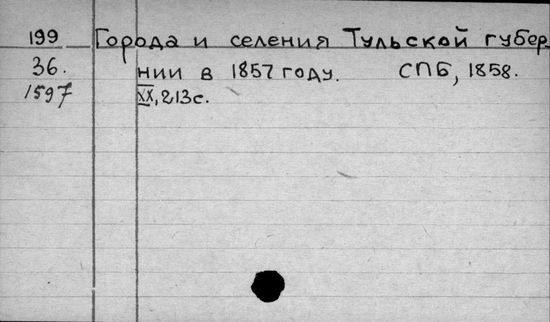 199 Города и селения Тульской губер
36. нии в 1857 году. СПБ, 1858.
1597 XX, 213 с.